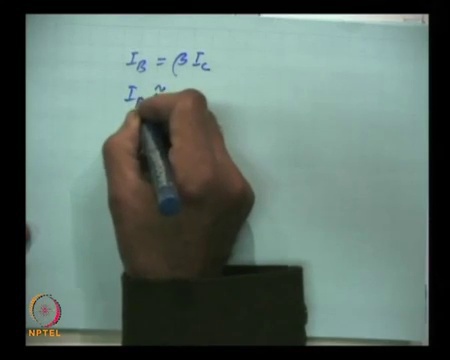 I_B = β I_C
I_B ≅
NPTEL